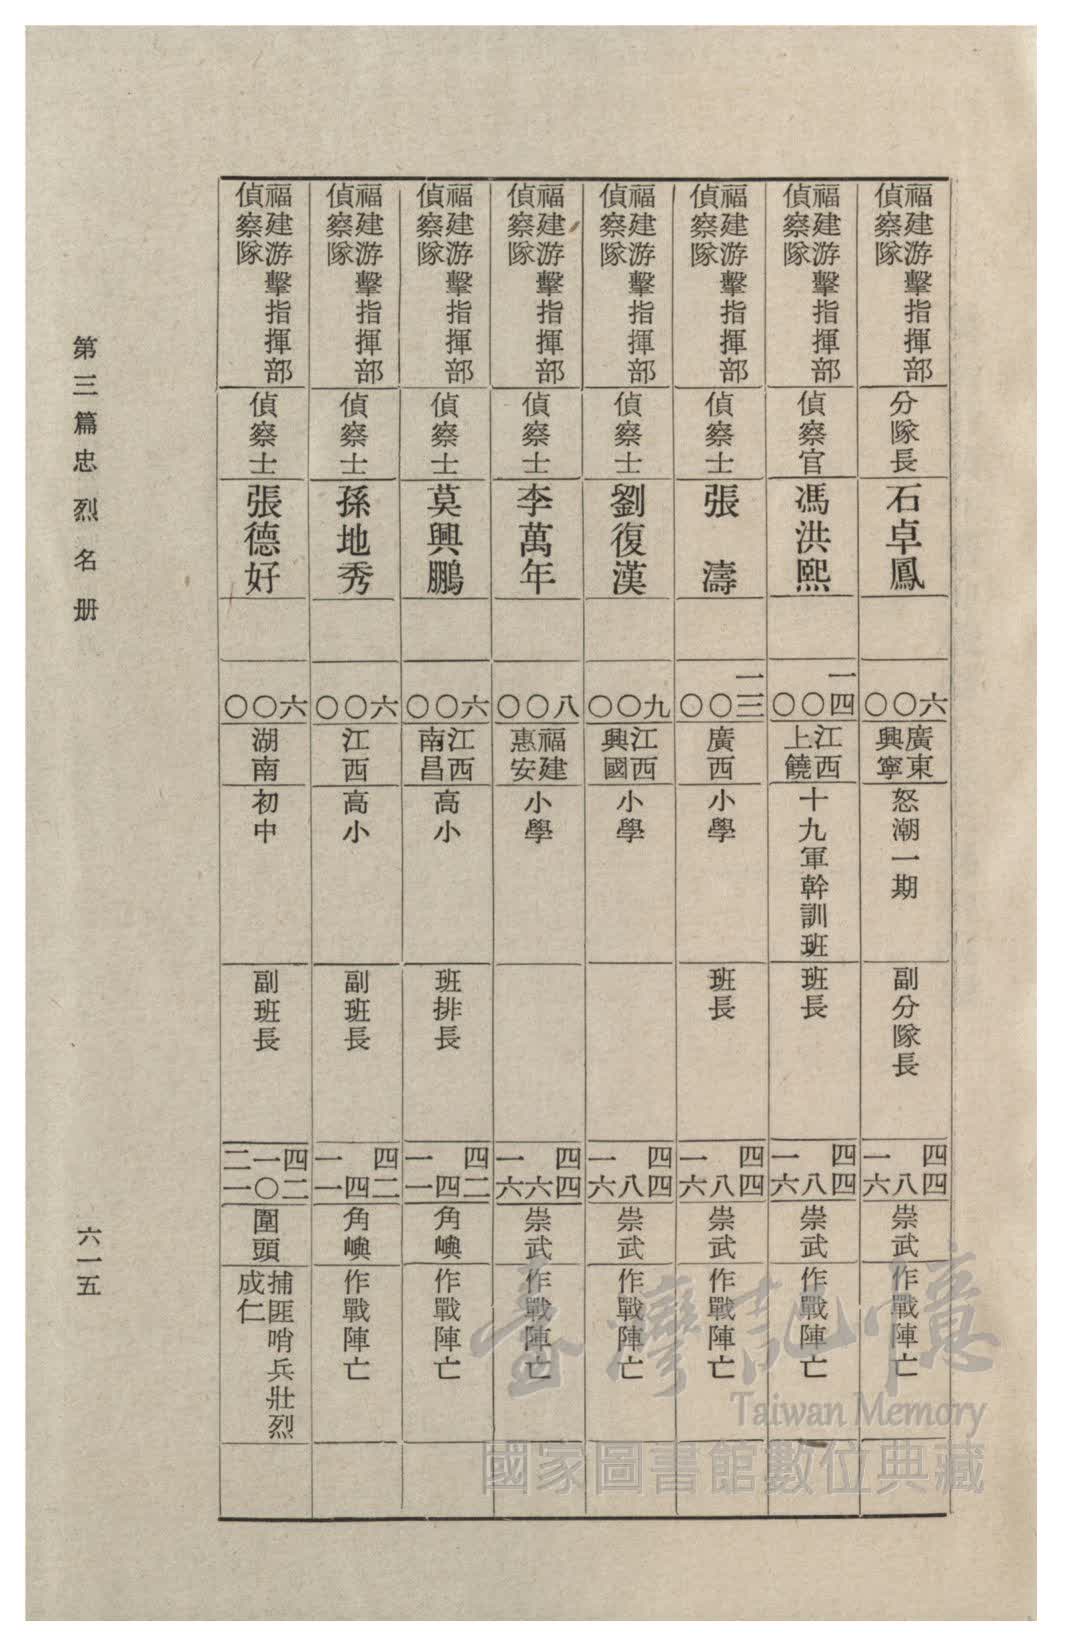 福建游擊指揮部偵察隊 分隊長 石卓鳳 六 〇 〇 廣東興寧 怒潮一期 副分隊長 四四 八 一六 崇武 作戰陣亡
福建游擊指揮部偵察隊 偵察官 馮洪熙 一四 〇 〇 江西上饒 十九軍幹訓班 班長 四四 八 一六 崇武 作戰陣亡
福建游擊指揮部偵察隊 偵察士 張濤 一三 〇 〇 廣西 小學 班長 四四 八 一六 崇武 作戰陣亡
福建游擊指揮部偵察隊 偵察士 劉復漢 九 〇 〇 江西興國 小學 四四 八 一六 崇武 作戰陣亡
福建游擊指揮部偵察隊 偵察士 李萬年 八 〇 〇 福建惠安 小學 四四 六 一六 崇武 作戰陣亡
福建游擊指揮部偵察隊 偵察士 莫興鵬 六 〇 〇 江西南昌 高小 班排長 四二 四 一一 角嶼 作戰陣亡
福建游擊指揮部偵察隊 偵察士 孫地秀 六 〇 〇 江西 高小 副班長 四二 四 一一 角嶼 作戰陣亡
福建游擊指揮部偵察隊 偵察士 張德好 六 〇 〇 湖南 初中 副班長 四二 一〇 二一 圍頭 捕匪哨兵壯烈成仁
第三篇忠烈名册
六一五
臺灣記憶
Taiwan Memory
國家圖書館數位典藏